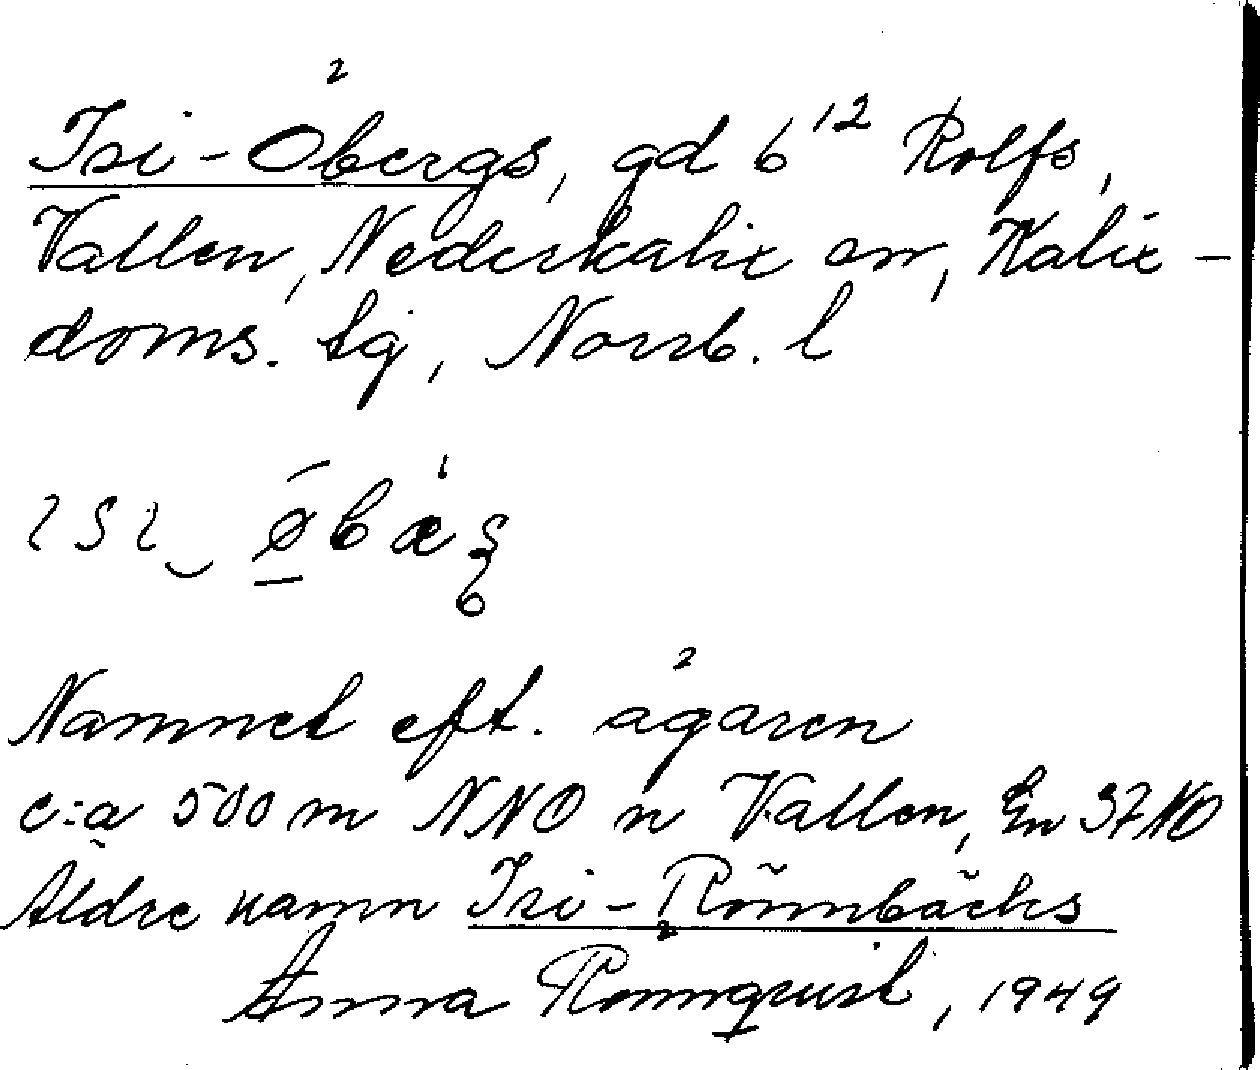 Isi-Öbergs, gd 6¹² Rolfs,
Vallen, Nederkalix sn, Kalix-
doms. tg, Norrb. l
Namnet eft. ägaren
c:a 500 m NNO n Vallen, En 37 NO
Äldre namn Isi-Rönnbäcks
Anna Rönnquist, 1949